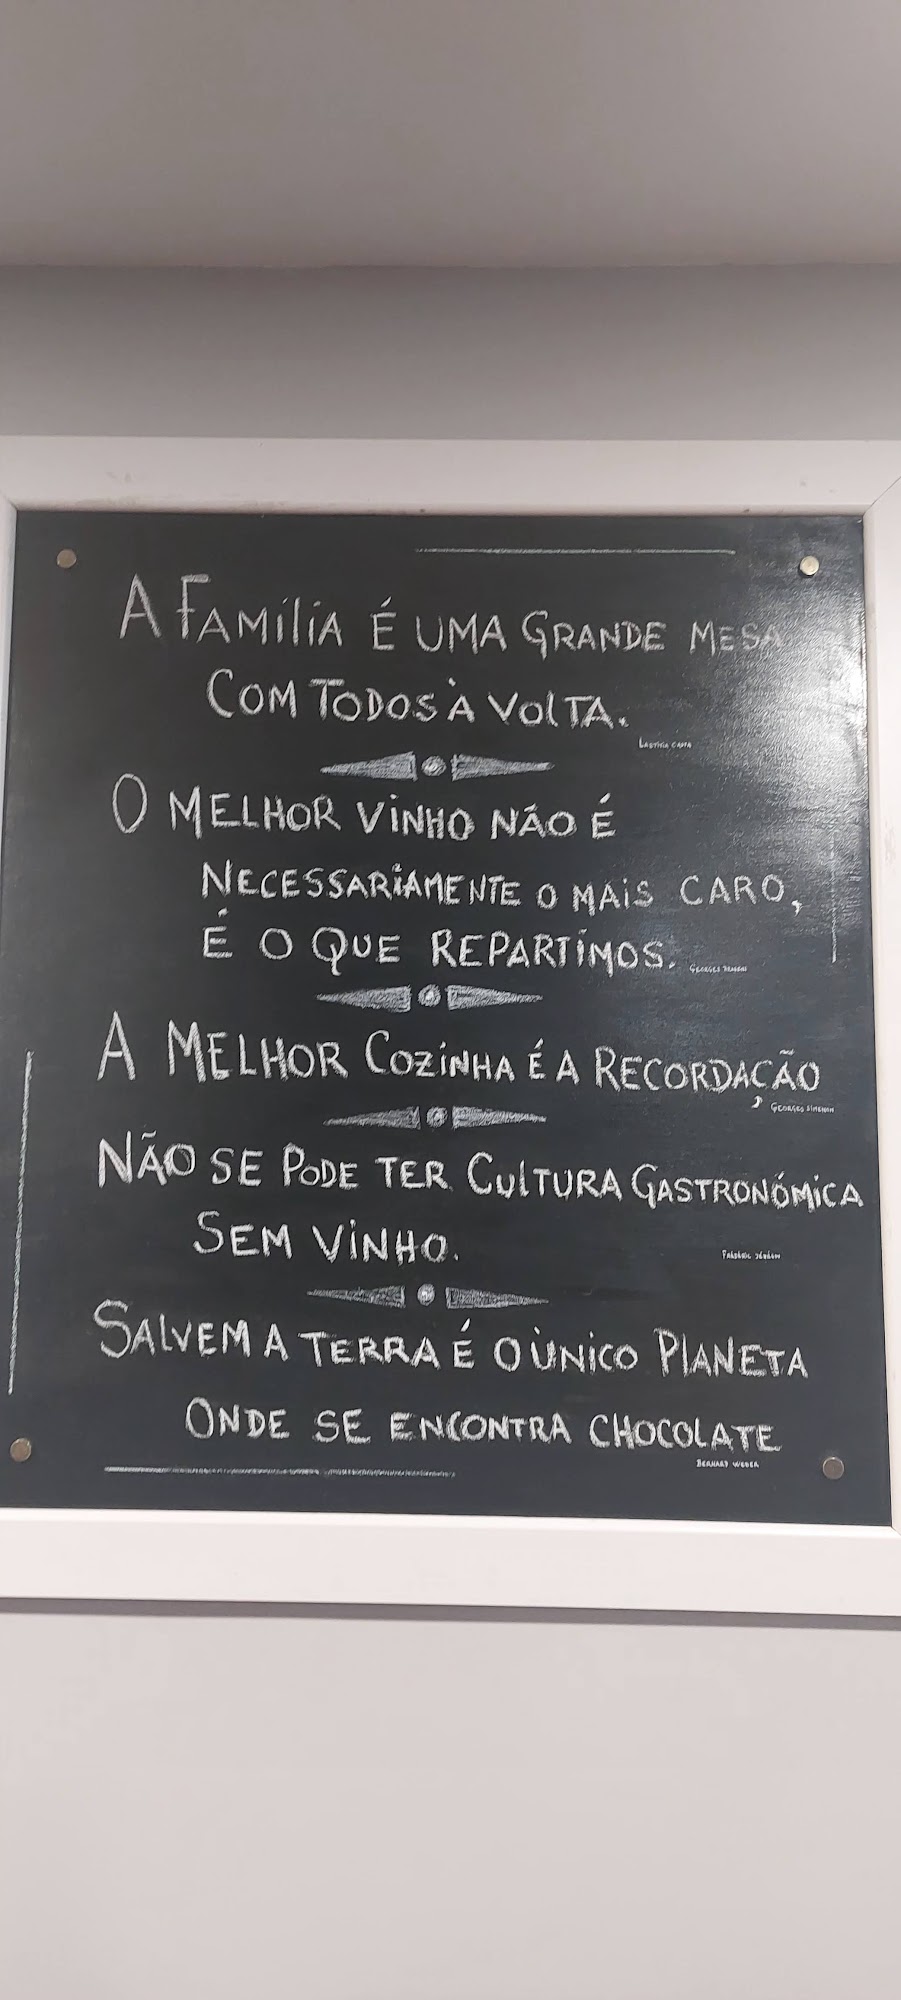 A FAMÍLIA É UMA GRANDE MESA
COM TODOS À VOLTA.
LAETITIA CASTA
O MELHOR VINHO NÃO É
NECESSARIAMENTE O MAIS CARO,
É O QUE REPARTIMOS.
GEORGES
A MELHOR COZINHA É A RECORDAÇÃO
GEORGES SIMENON
NÃO SE PODE TER CULTURA GASTRONÓMICA
SEM VINHO.
SALVEM A TERRA É O ÚNICO PLANETA
ONDE SE ENCONTRA CHOCOLATE
BERNARD WEBER